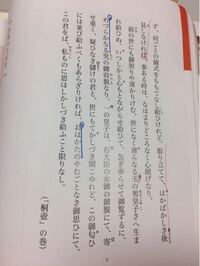 ず、何ごとの儀式をももてなし給ひけれど、取り立てて、はかばかしき後
見しなければ、事ある時は、なほよりどころなく心細げなり。
前の世にも御契りや深かりけむ、世になく清らなる玉の男皇子さへ生ま
れ給ひぬ。いつしかと心もとながらせ給ひて、急ぎ参らせて御覧ずるに、
めづらかなる児の御容貌なり。一の皇子は、右大臣の女御の御腹にて、寄
せ重く、疑ひなき儲けの君と、世にもてかしづき聞こゆれど、この御匂ひ
には並び給ふべくもあらざりければ、おほかたのやむごとなき御思ひにて、
この君をば、私ものに思ほしかしづき給ふこと限りなし。
（「桐壺」の巻）